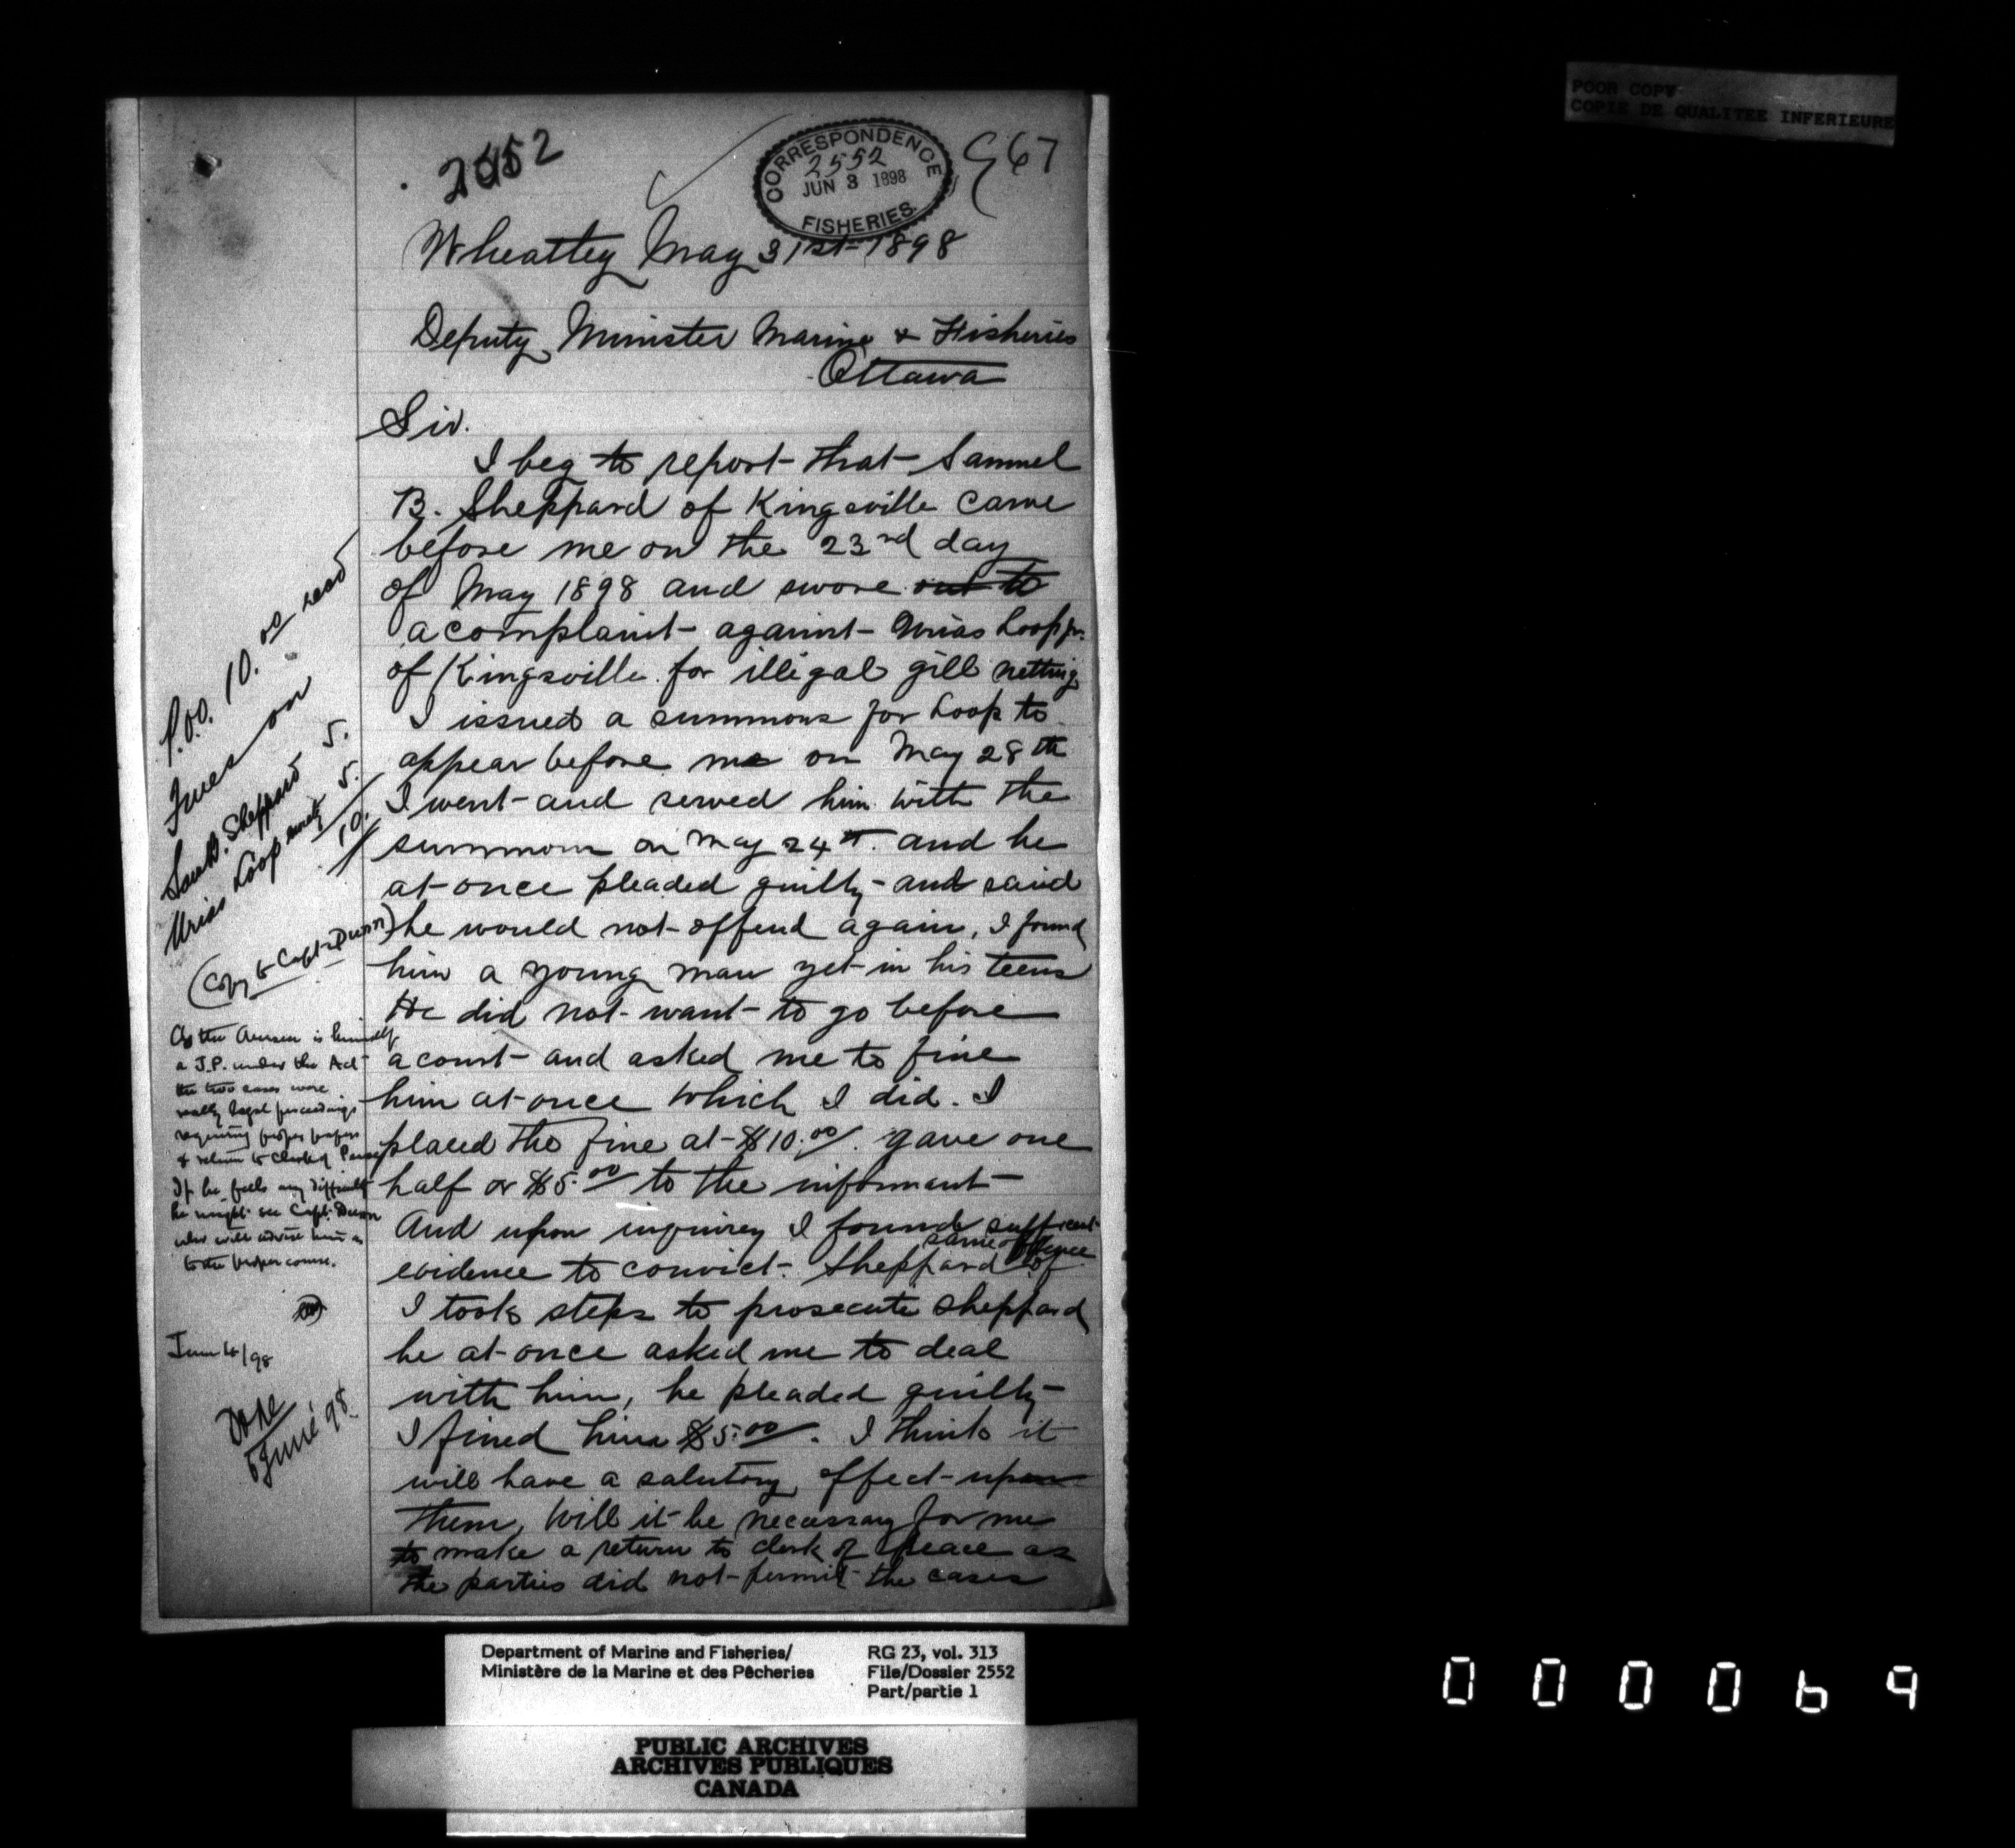 POOR COPY
COPIE DE QUALITEE INFERIEURE
2552
CORRESPONDENCE
2552
JUN 3 1898
FISHERIES
967
Wheatley May 31st 1898
Deputy Minister Marine & Fisheries
Ottawa
Sir.
I beg to report that Samuel
B. Sheppard of Kingsville came
before me on the 23rd day
of May 1898 and swore out to
a complaint against Urias Loop jr.
of Kingsville for illegal gill netting
I issued a summons for Loop to
appear before me on May 28th
I went and served him with the
summons on May 24th. and he
at once pleaded guilty and said
he would not offend again, I found
him a young man yet in his teens
He did not want to go before
a court and asked me to fine
him at once which I did. I
placed the fine at $10.00 gave one
half or $5.00 to the informant
And upon inquirey I found sufficent
evidence to convict Sheppard of same offence
I took steps to prosecute Sheppard
he at once asked me to deal
with him, he pleaded guilty
I fined him $5.00. I think it
will have a salutory effect upon
them, Will it be necessary for me
to make a return to clerk of peace as
the parties did not permit the cases
P.O.O. 10.00 recd
Fines on
Sam B. Sheppard 5.
Urias Loop 5.
10.
(Copy to Capt Dunn)
As the Overseer is himself
a J.P. under the Act
the two cases were
really legal proceedings
requiring proper papers
& return to Clerk of Peace
If he feels any difficulty
he might see Capt. Dunn
who will advise him as
to the proper course.
June 4/98
Done
6 June '98.
Department of Marine and Fisheries/
Ministère de la Marine et des Pêcheries
RG 23, vol. 313
File/Dossier 2552
Part/partie 1
PUBLIC ARCHIVES
ARCHIVES PUBLIQUES
CANADA
000069